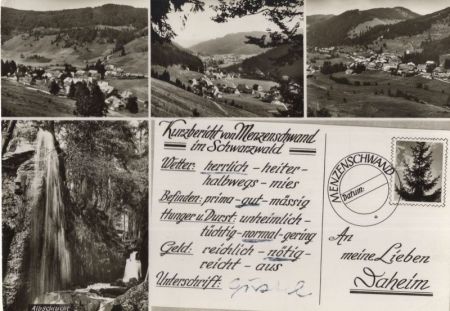 Kurzbericht von Menzenschwand
im Schwarzwald.
Wetter: herrlich - heiter -
halbwegs - mies
Befinden: prima - gut - mässig
Hunger u. Durst: unheimlich -
tüchtig - normal - gering
Geld: reichlich - nötig -
reicht - aus
Unterschrift:
MENZENSCHWAND
Datum:
An
meine Lieben
Daheim
Albschlucht